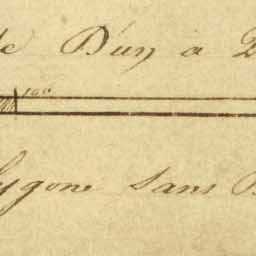 de D'un à 2
100
lygone sans B